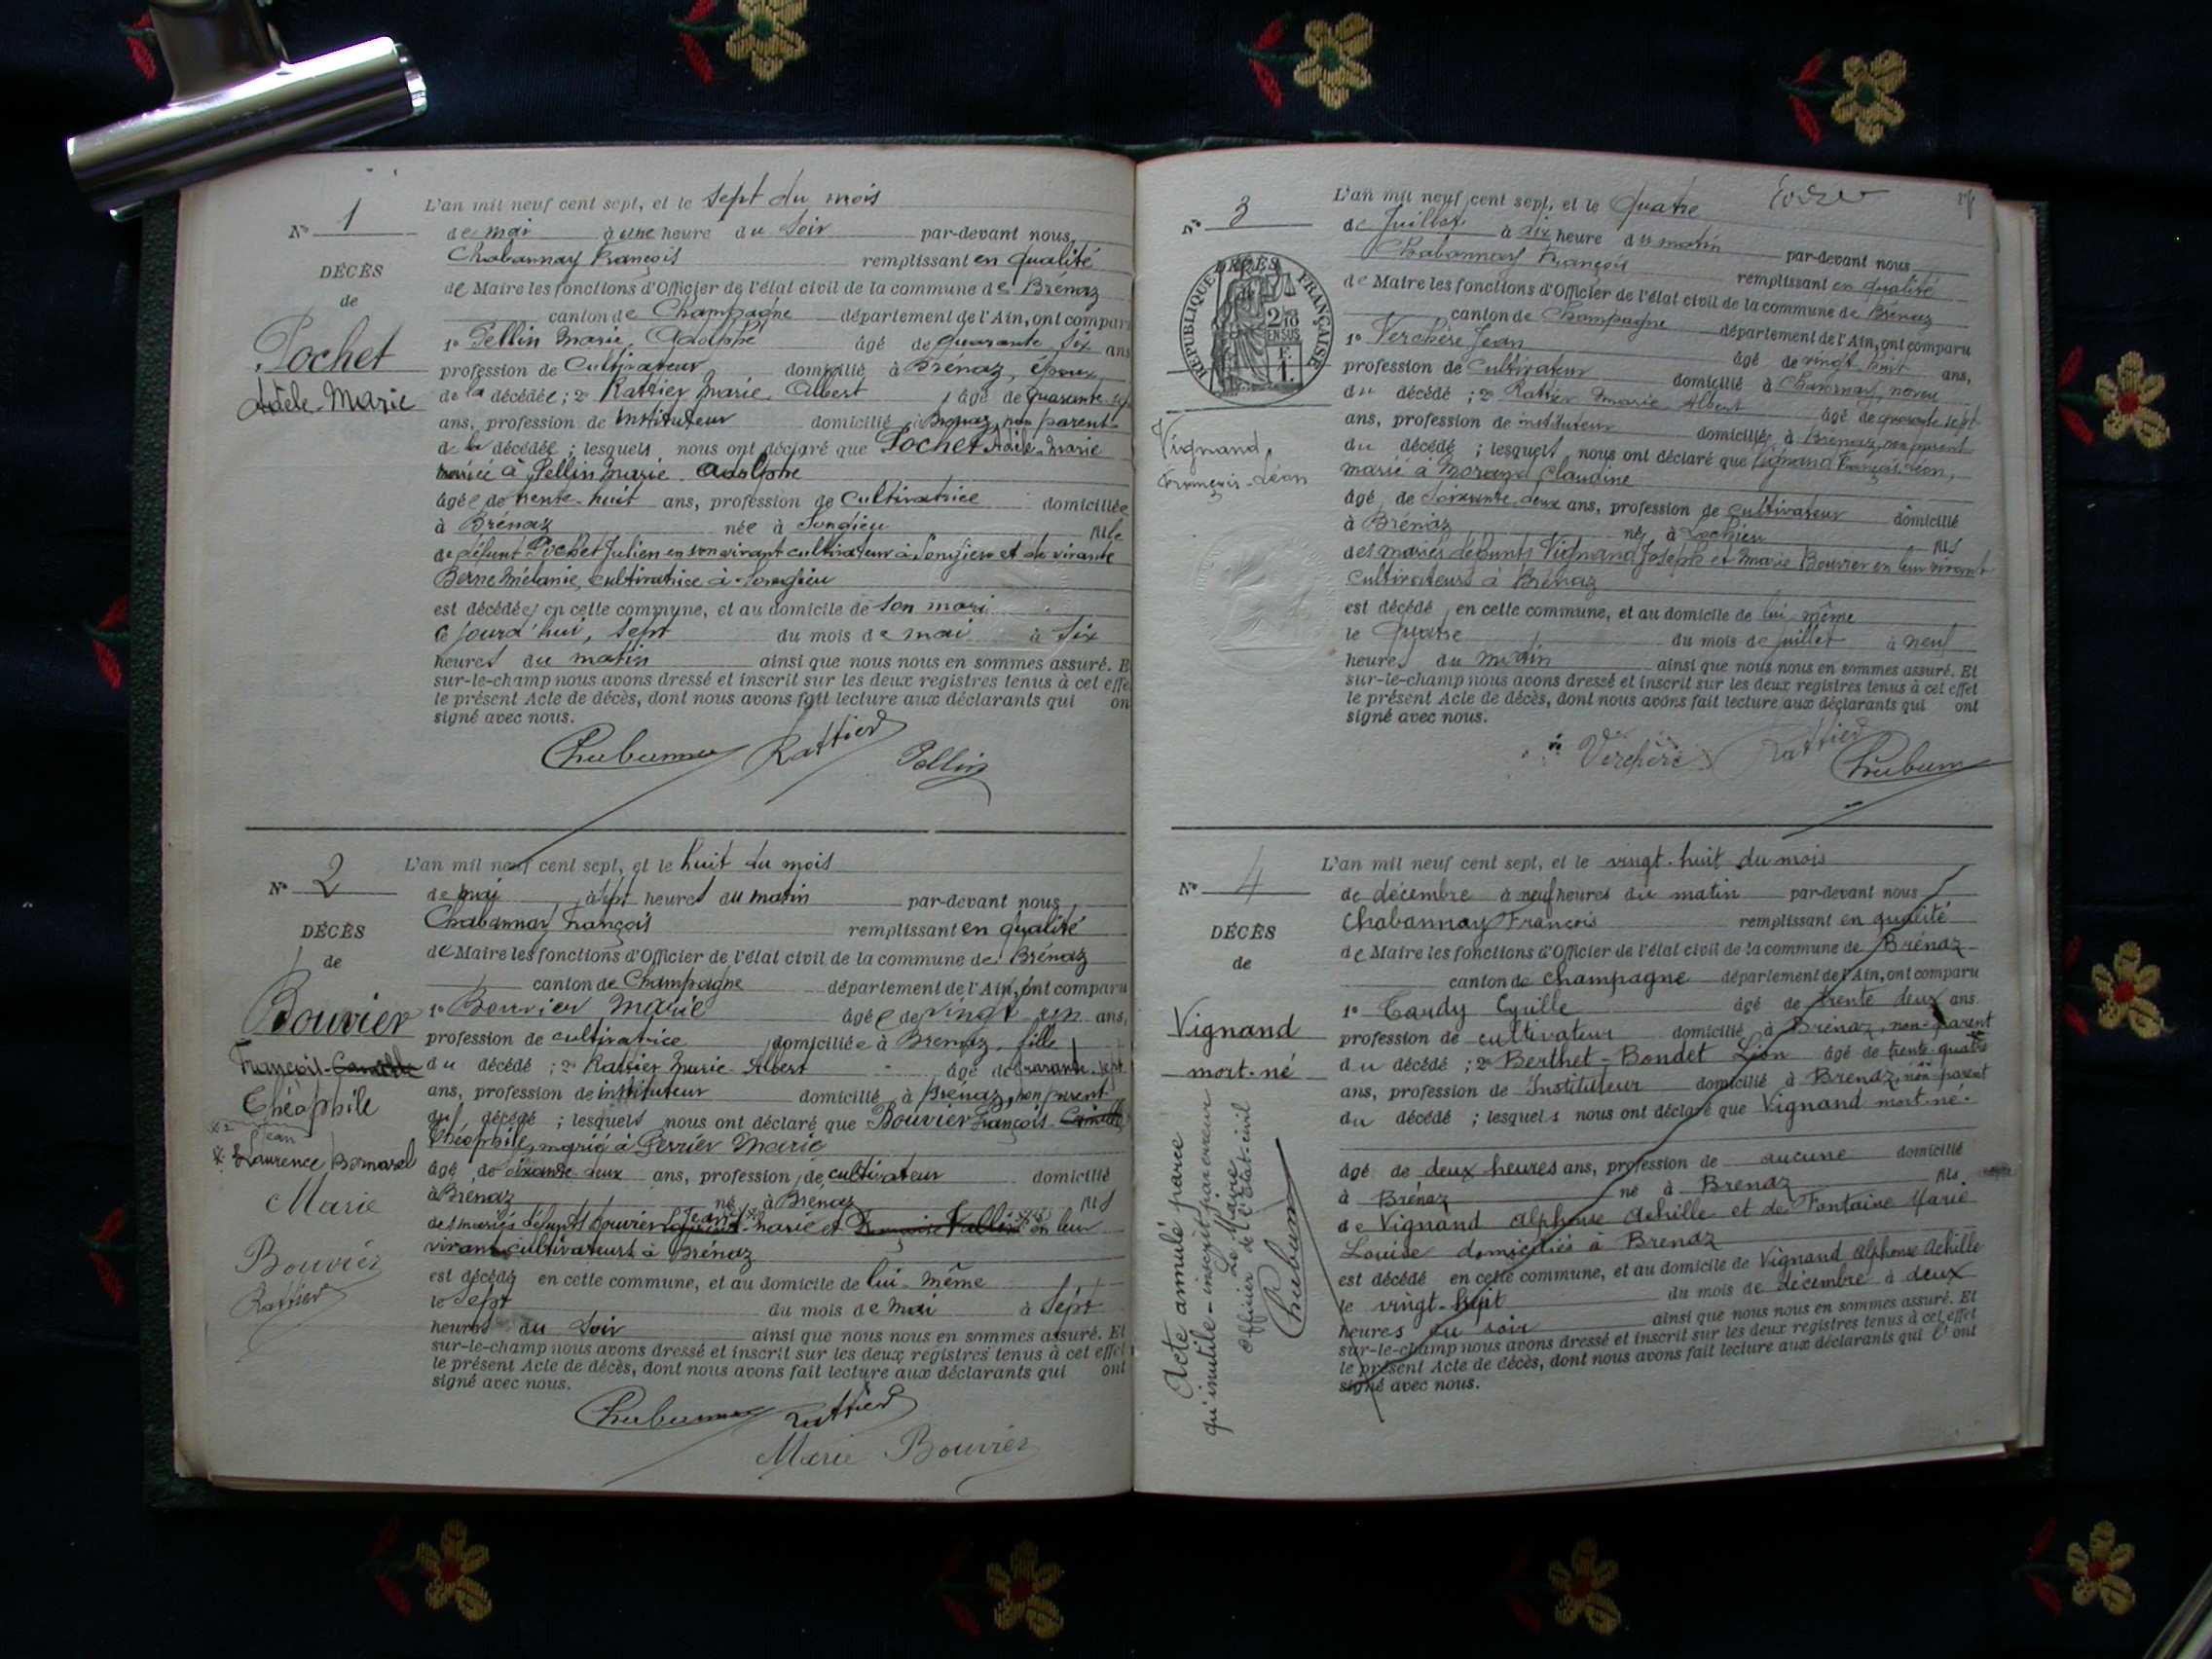 N° 1
DÉCÈS
de
Pochet
Adèle-Marie
L'an mil neuf cent sept, et le sept du mois
de mai à une heure du soir par-devant nous
Chabannay François remplissant en qualité
de Maire les fonctions d'Officier de l'état civil de la commune de Brénaz
canton de Champagne département de l'Ain, ont comparu
1° Pellin Marie Adolphe âgé de quarante six ans
profession de Cultivateur domicilié à Brénaz, époux
de la décédée ; 2° Rattier Marie Albert âgé de quarante sept
ans, profession de instituteur domicilié à Brénaz, non parent
de la décédée ; lesquels nous ont déclaré que Pochet Adèle-Marie
mariée à Pellin Marie Adolphe
âgée de trente-huit ans, profession de cultivatrice domiciliée
à Brénaz née à Songieu fille
de défunt Pochet Julien en son vivant cultivateur à Songieu et de vivante
Berne Mélanie, cultivatrice à Songieu
est décédée en cette commune, et au domicile de son mari
ce jourd'hui, sept du mois de mai à six
heures du matin ainsi que nous nous en sommes assuré. E
sur-le-champ nous avons dressé et inscrit sur les deux registres tenus à cet effe
le présent Acte de décès, dont nous avons fait lecture aux déclarants qui on
signé avec nous.
Rattier Pellin
N° 2
DÉCÈS
de
Bouvier
François
Théophile
x2 Jean
Laurence Bernard
Marie
Bouvier
Rattier
L'an mil neuf cent sept, et le huit du mois
de mai à sept heures du matin par-devant nous
Chabannay François remplissant en qualité
de Maire les fonctions d'Officier de l'état civil de la commune de Brénaz
canton de Champagne département de l'Ain, ont comparu
1° Bouvier Marie âgée de vingt un ans,
profession de cultivatrice domiciliée à Brénaz, fille
du décédé ; 2° Rattier Marie Albert âgé de quarante sept
ans, profession de instituteur domicilié à Brénaz, non parent
du décédé ; lesquels nous ont déclaré que Bouvier François
Théophile, marié à Perrier Marie
âgé de soixante deux ans, profession de cultivateur domicilié
à Brénaz né à Brénaz fils
des mariés défunts Bouvier Jean Marie et en leur
vivant cultivateurs à Brénaz
est décédé en cette commune, et au domicile de lui-même
le sept du mois de mai à sept
heures du soir ainsi que nous nous en sommes assuré. Et
sur-le-champ nous avons dressé et inscrit sur les deux registres tenus à cet effet
le présent Acte de décès, dont nous avons fait lecture aux déclarants qui ont
signé avec nous.
Rattier
Marie Bouvier
N° 3
RÉPUBLIQUE FRANÇAISE
DÉCÈS
2/10 EN SUS
Vignand
François-Léon
L'an mil neuf cent sept, et le quatre
de Juillet à dix heure du matin par-devant nous
Chabannay François remplissant en qualité
de Maire les fonctions d'Officier de l'état civil de la commune de Brénaz
canton de Champagne département de l'Ain, ont comparu
1° Verchère Jean âgé de vingt huit ans,
profession de Cultivateur domicilié à Chavornay, neveu
du décédé ; 2° Rattier Marie Albert âgé de quarante sept
ans, profession de instituteur domicilié à Brénaz, non parent
du décédé ; lesquels nous ont déclaré que Vignand François Léon,
marié à Morand Claudine
âgé de soixante deux ans, profession de cultivateur domicilié
à Brénaz né à Lochieu fils
des mariés défunts Vignand Joseph et Marie Bouvier en leur vivant
cultivateurs à Brénaz
est décédé en cette commune, et au domicile de lui-même
le Quatre du mois de juillet à neuf
heures du matin ainsi que nous nous en sommes assuré. Et
sur-le-champ nous avons dressé et inscrit sur les deux registres tenus à cet effet
le présent Acte de décès, dont nous avons fait lecture aux déclarants qui ont
signé avec nous.
Verchère Rattier
N° 4
DÉCÈS
de
Vignand
mort-né
Acte annulé parce
qu'inutile - inscrit par erreur
Le Maire
officier de l'état-civil
L'an mil neuf cent sept, et le vingt-huit du mois
de décembre à neuf heures du matin par-devant nous
Chabannay François remplissant en qualité
de Maire les fonctions d'Officier de l'état civil de la commune de Brénaz
canton de Champagne département de l'Ain, ont comparu
1° Tardy Cyrille âgé de trente deux ans
profession de cultivateur domicilié à Brénaz, non-parent
du décédé ; 2° Berthet-Bondet Léon âgé de trente-quatre
ans, profession de Instituteur domicilié à Brenaz, non parent
du décédé ; lesquels nous ont déclaré que Vignand mort-né
âgé de deux heures ans, profession de aucune domicilié
à Brénaz né à Brenaz fils
de Vignand Alphonse Achille et de Fontaine Marie
Louise domiciliés à Brenaz
est décédé en cette commune, et au domicile de Vignand Alphonse Achille
le vingt-huit du mois de décembre à deux
heures du soir ainsi que nous nous en sommes assuré. Et
sur-le-champ nous avons dressé et inscrit sur les deux registres tenus à cet effet
le présent Acte de décès, dont nous avons fait lecture aux déclarants qui l'ont
signé avec nous.